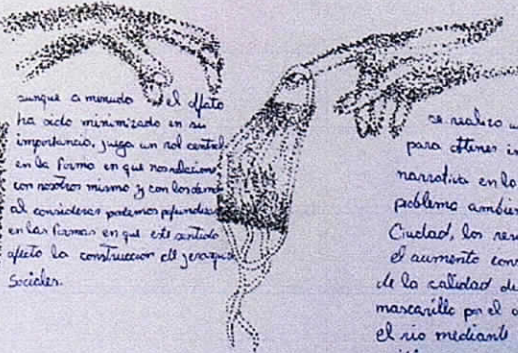 aunque a menudo el olfato
ha sido minimizado en su
importancia, juega un rol central
en la forma en que nos relacionamos
con nosotros mismo y con los demas
al considerar podemos profundizar
en las formas en que este sentido
afecta la construccion de jerarquias
Sociales.
se realizo
para obtener
narrativa en la
problema
Ciudad, los
el aumento
de la calidad
mascarilla por el
el rio mediante